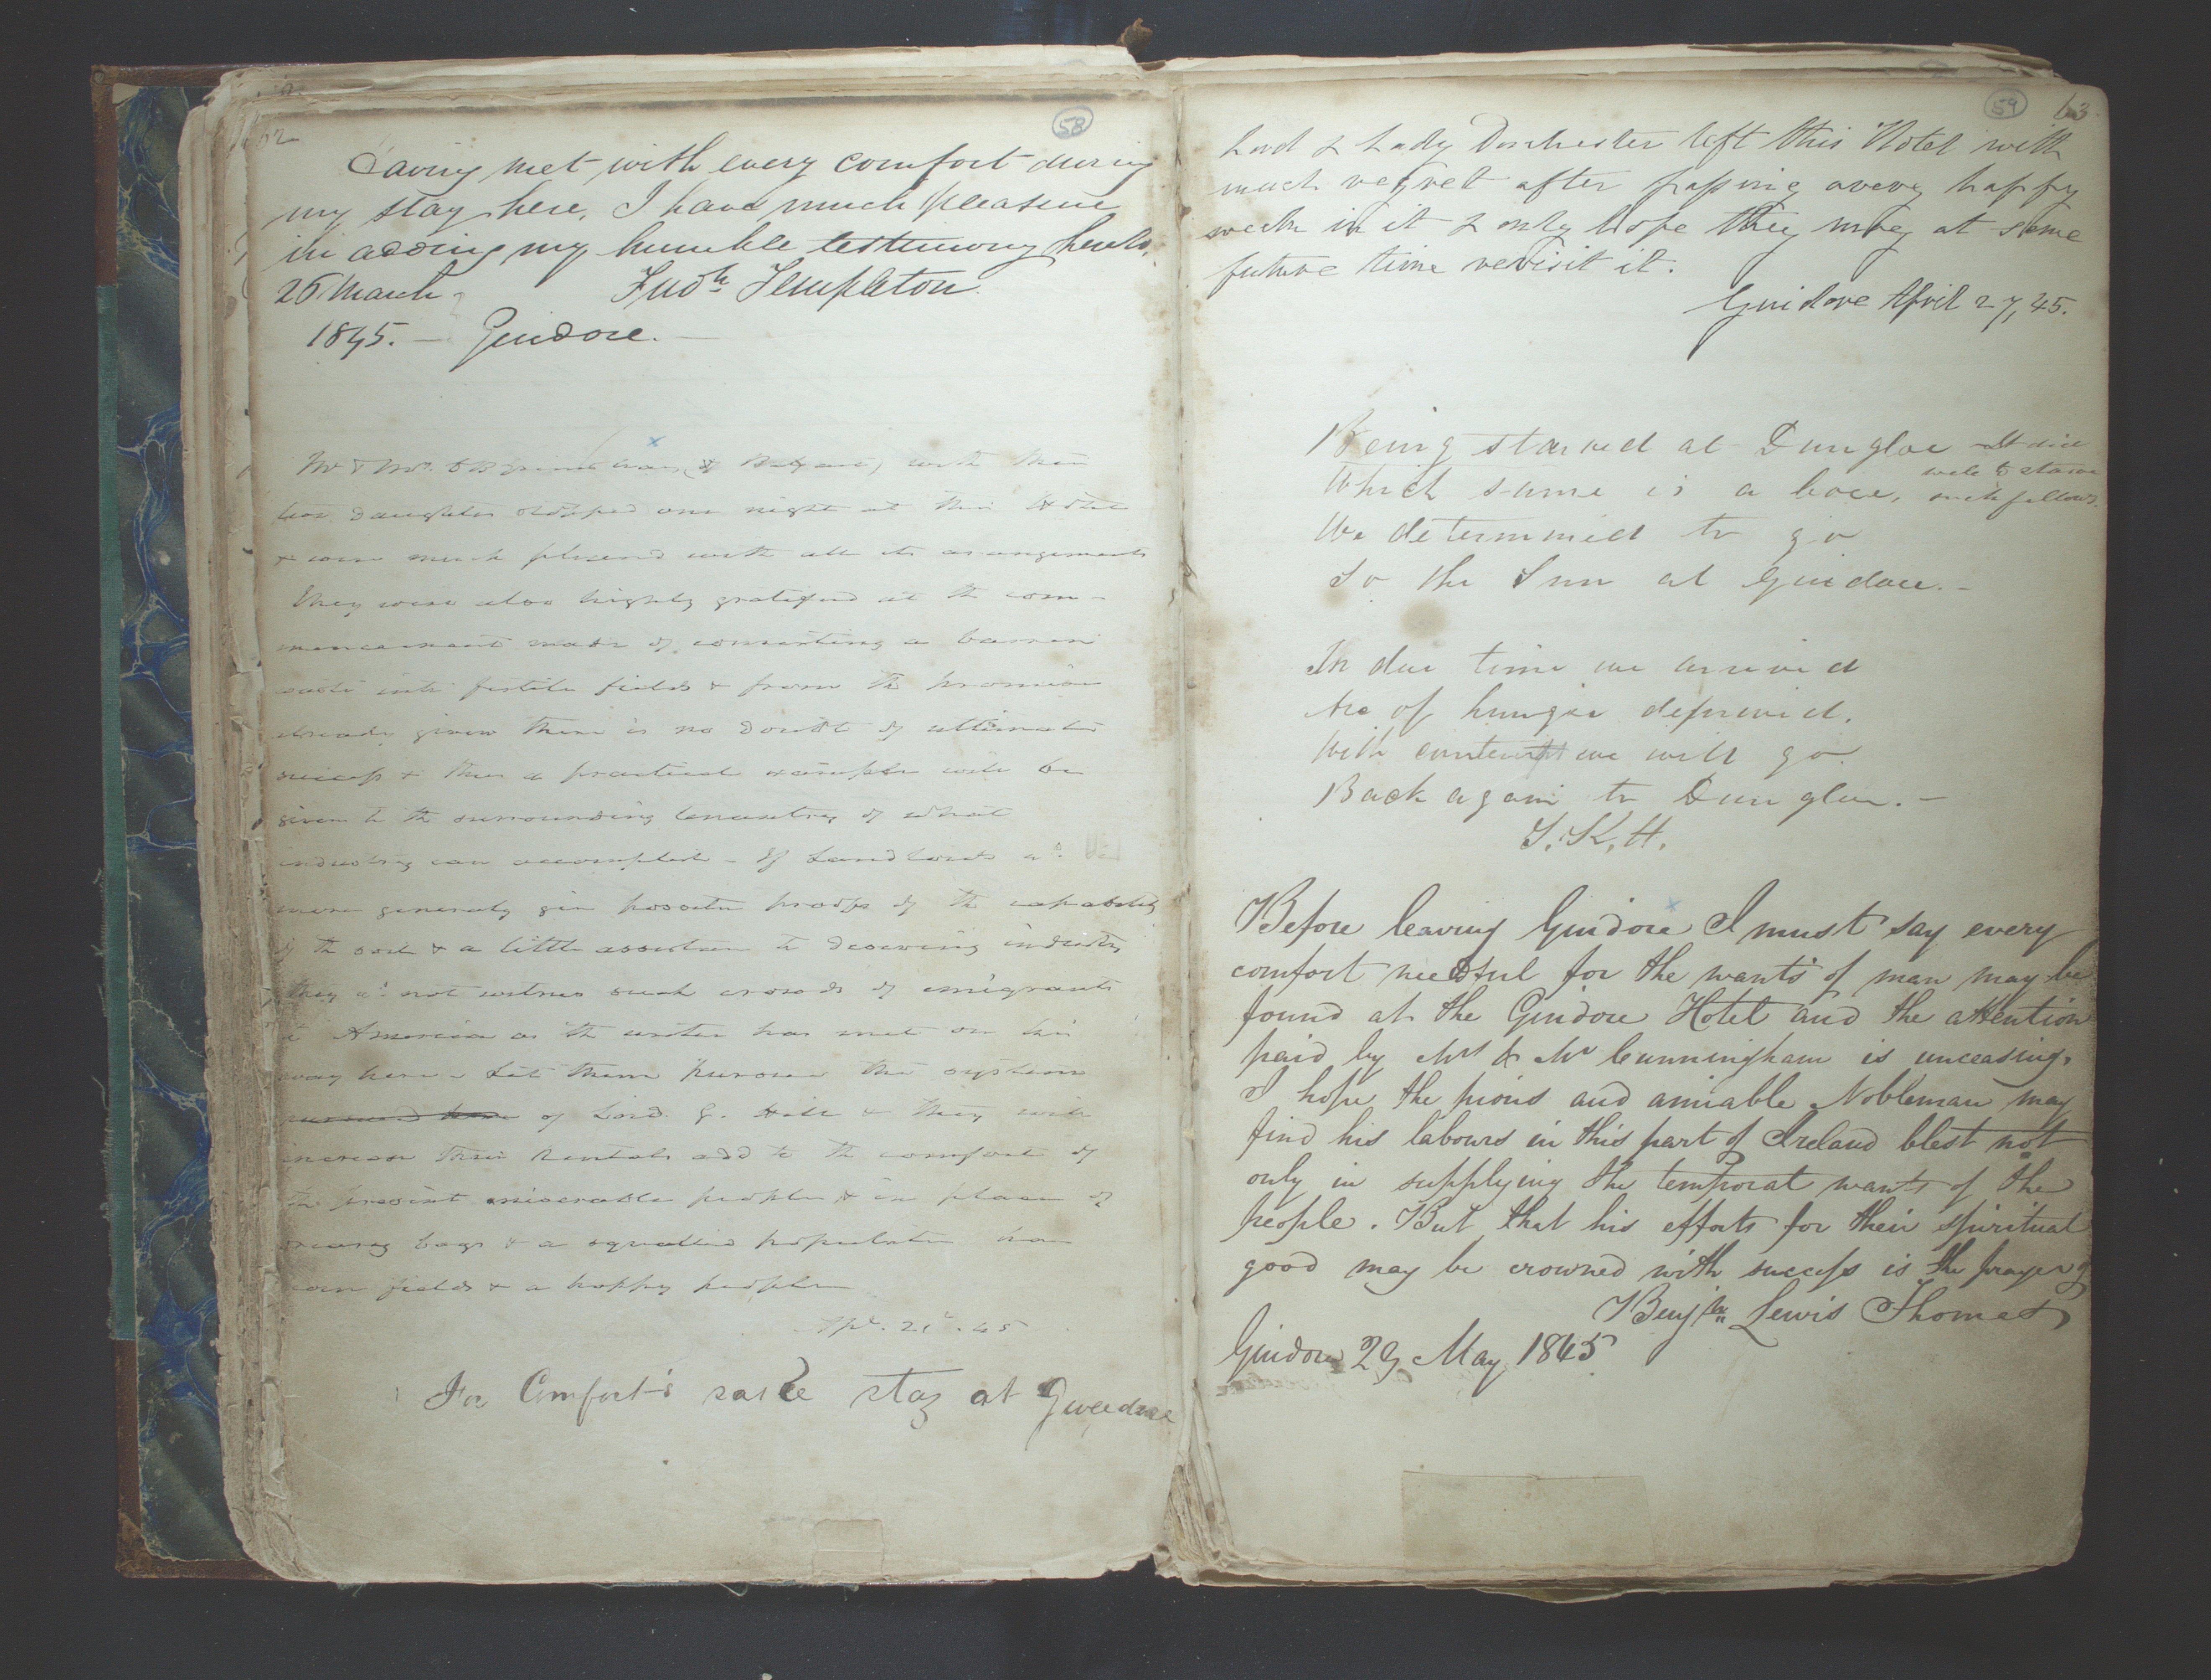 58
Having met with every comfort during
my stay here, I have much pleasure
in adding my humble testimony hereto.
26 March Fredk Templeton
1845. — Guidore. —
Mr & Mrs. of Belfast, with their
two daughters stopped one night at this Hotel
& were much pleased with all its arangements
They were also highly gratified at the com-
mencement made of converting a barren
waste into fertile fields & from the promise
already given there is no doubt of ultimate
success & thus a practical example will be
given to the surrounding tenantry of what
industry can accomplish – If Landlords wd.
more generaly give positive proofs of the capability
of the soil & a little assistance to deserving industry
they wd. not witness such crowds of emigrants
to America as the writer has met on his
way here – Let them pursue the system
pursued here of Lord G. Hill & they will
increase their Rentals add to the comfort of
the present miserable people & in place of
dreary bogs & a squallid population have
corn fields & a happy people
Apl. 21st. 45
For Comfort's sake stay at Gweedore
59 63
Lord & Lady Dorchester left this Hotel with
much regret after passing a very happy
week in it & only hope they may at some
future time revisit it.
Guidore April 27, 45.
Being starved at Dungloe It did
well to starve
Which same is a bore, such fellows.
We determined to go
To the Inn at Guidore. –
In due time we arrived
Are of hunger deprived.
With content we will go
Back again to Dungloe. –
S. K. H.
Before leaving Guidore I must say every
comfort needful for the wants of man may be
found at the Guidore Hotel and the attention
paid by Mrs & Mr Cunningham is unceasing.
I hope the pious and amiable Nobleman may
find his labours in this part of Ireland blest not
only in supplying the temporal wants of the
people. But that his efforts for their spiritual
good may be crowned with success is the prayer of
Benjn. Lewis Thomas
Guidore 29 May 1845